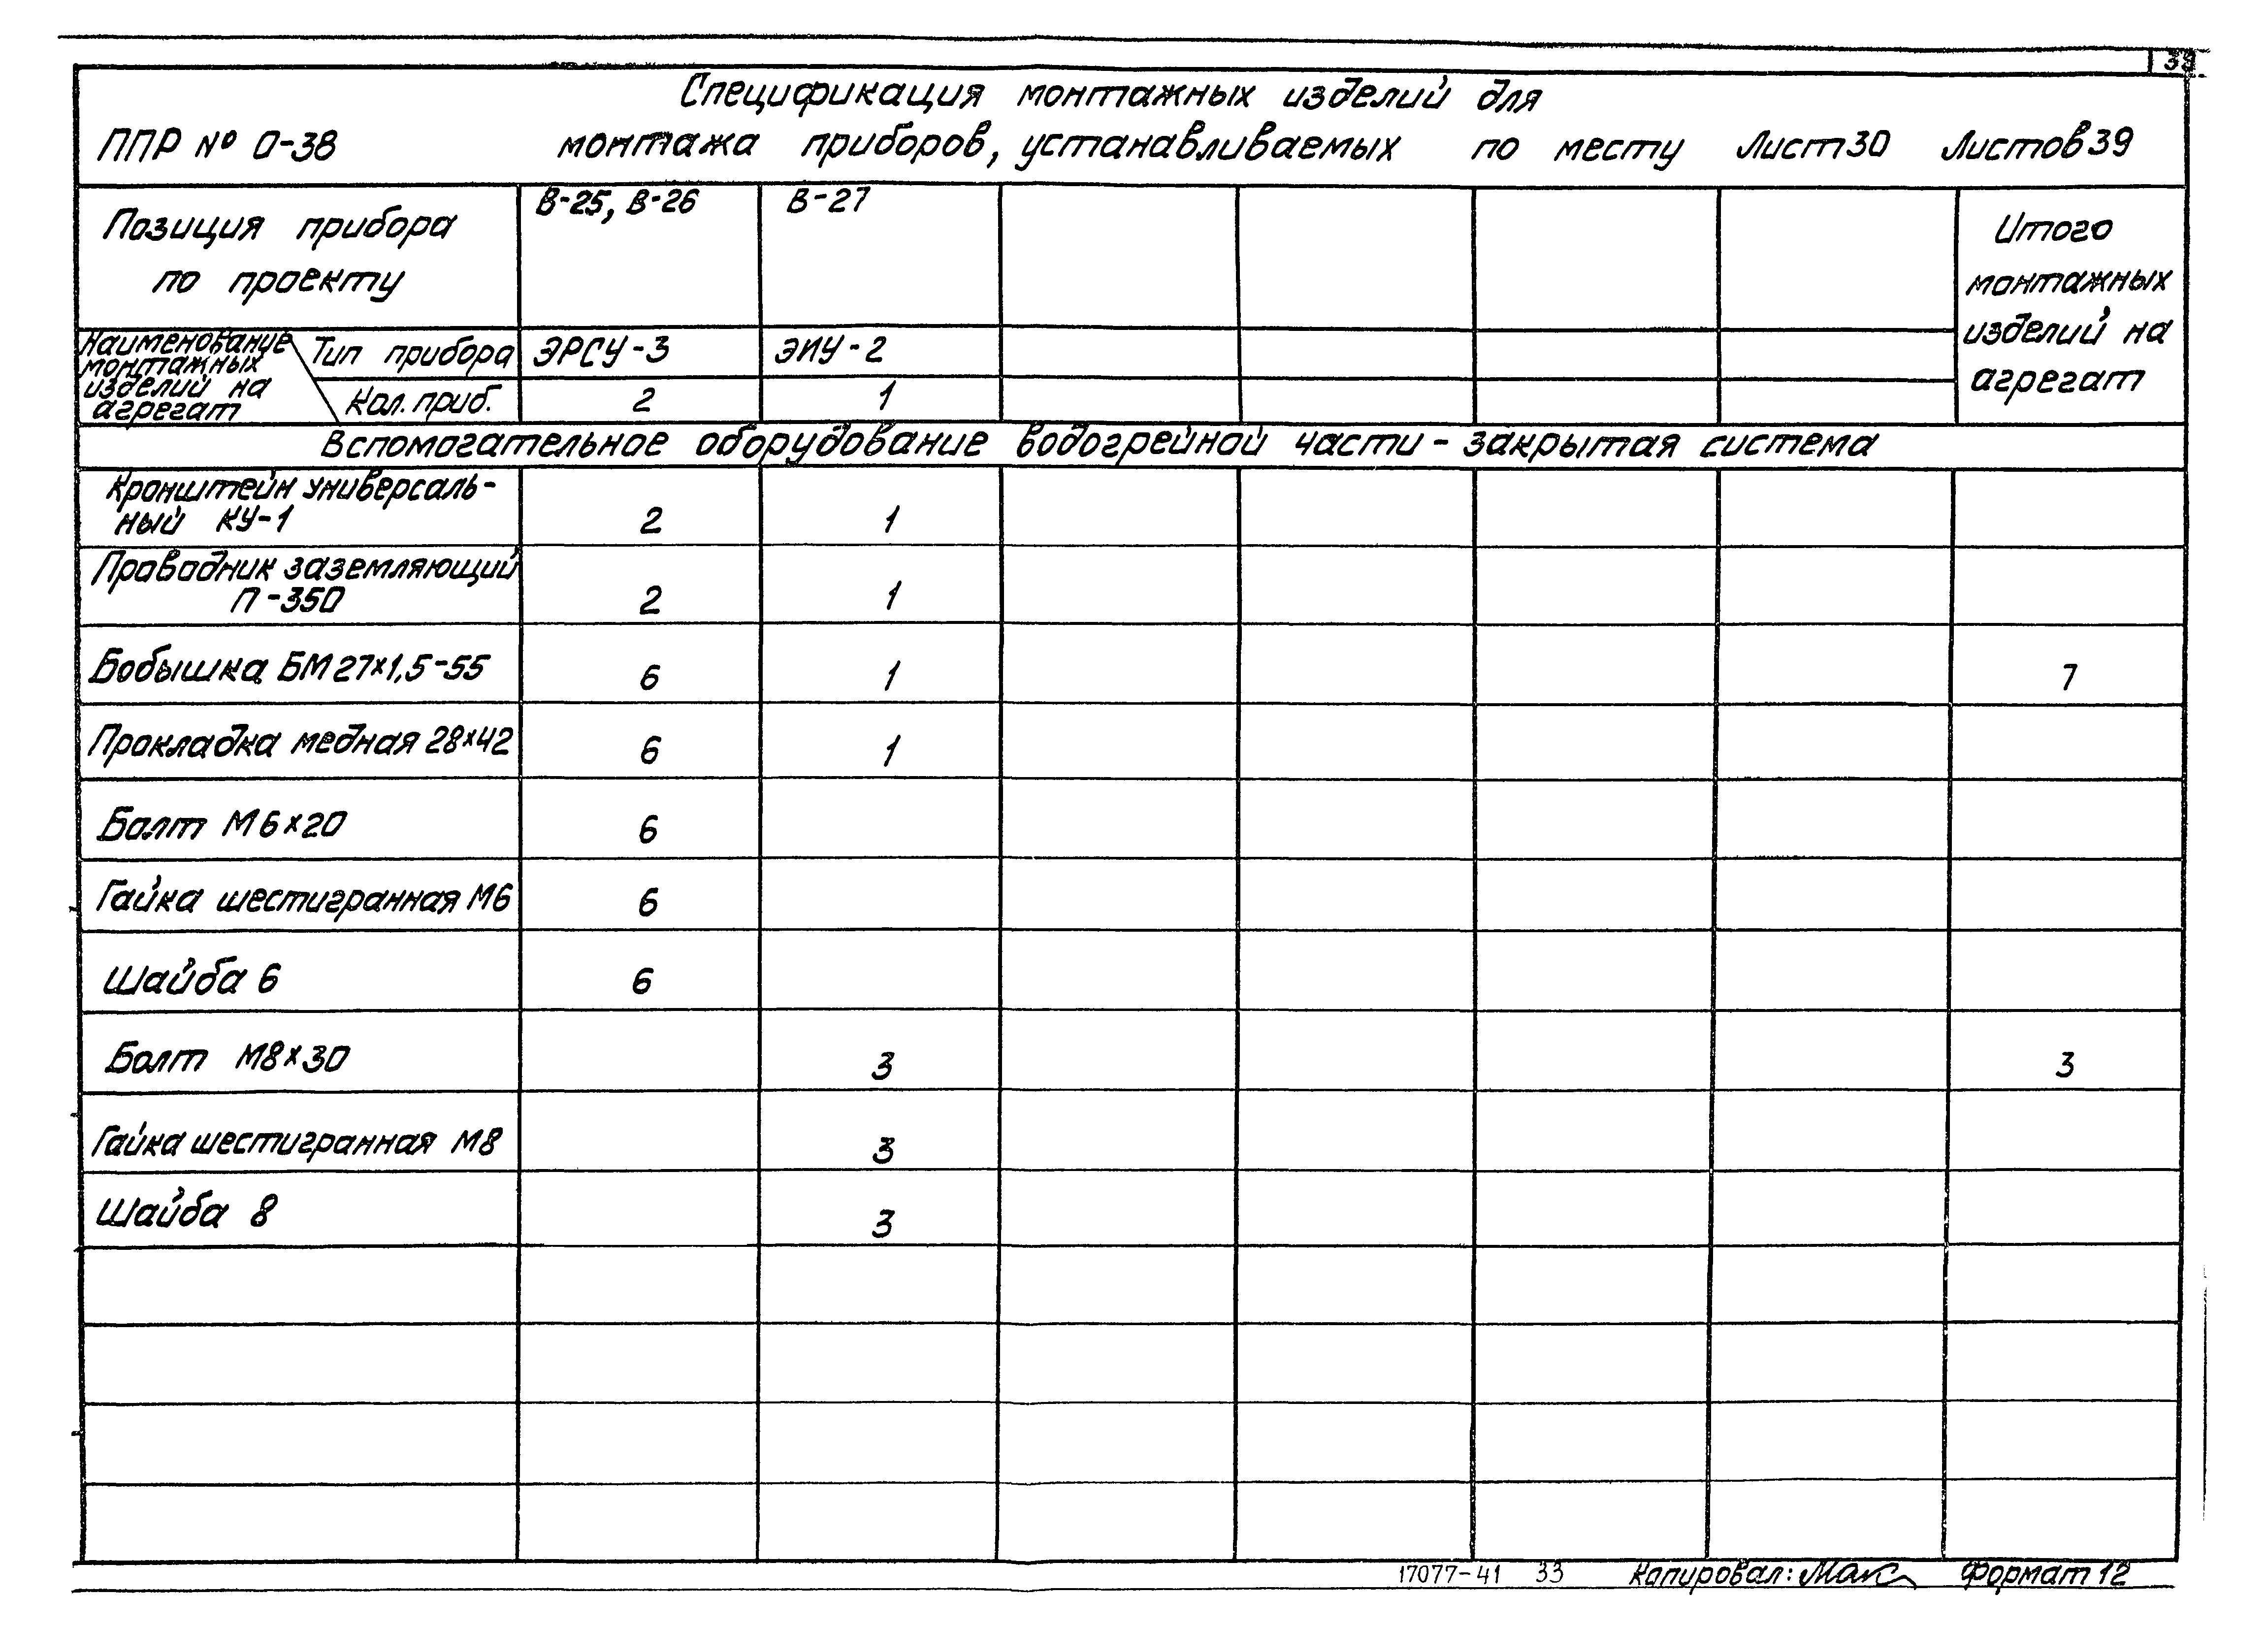 Спецификация монтажных изделий для
ППР № 0-38 монтажа приборов, устанавливаемых по месту Лист 30 Листов 39
Позиция прибора
по проекту
В-25, В-26 В-27
Итого
монтажных
изделий на
агрегат
Наименование
монтажных
изделий на
агрегат
Тип прибора ЭРСУ-3 ЭИУ-2
Кол. приб. 2 1
Вспомогательное оборудование водогрейной части - закрытая система
Кронштейн универсаль-
ный КУ-1 2 1
Проводник заземляющий
П-350 2 1
Бобышка БМ27х1,5-55 6 1 7
Прокладка медная 28х42 6 1
Болт М6х20 6
Гайка шестигранная М6 6
Шайба 6 6
Болт М8х30 3 3
Гайка шестигранная М8 3
Шайба 8 3
17077-41 33 Копировал: Формат 12